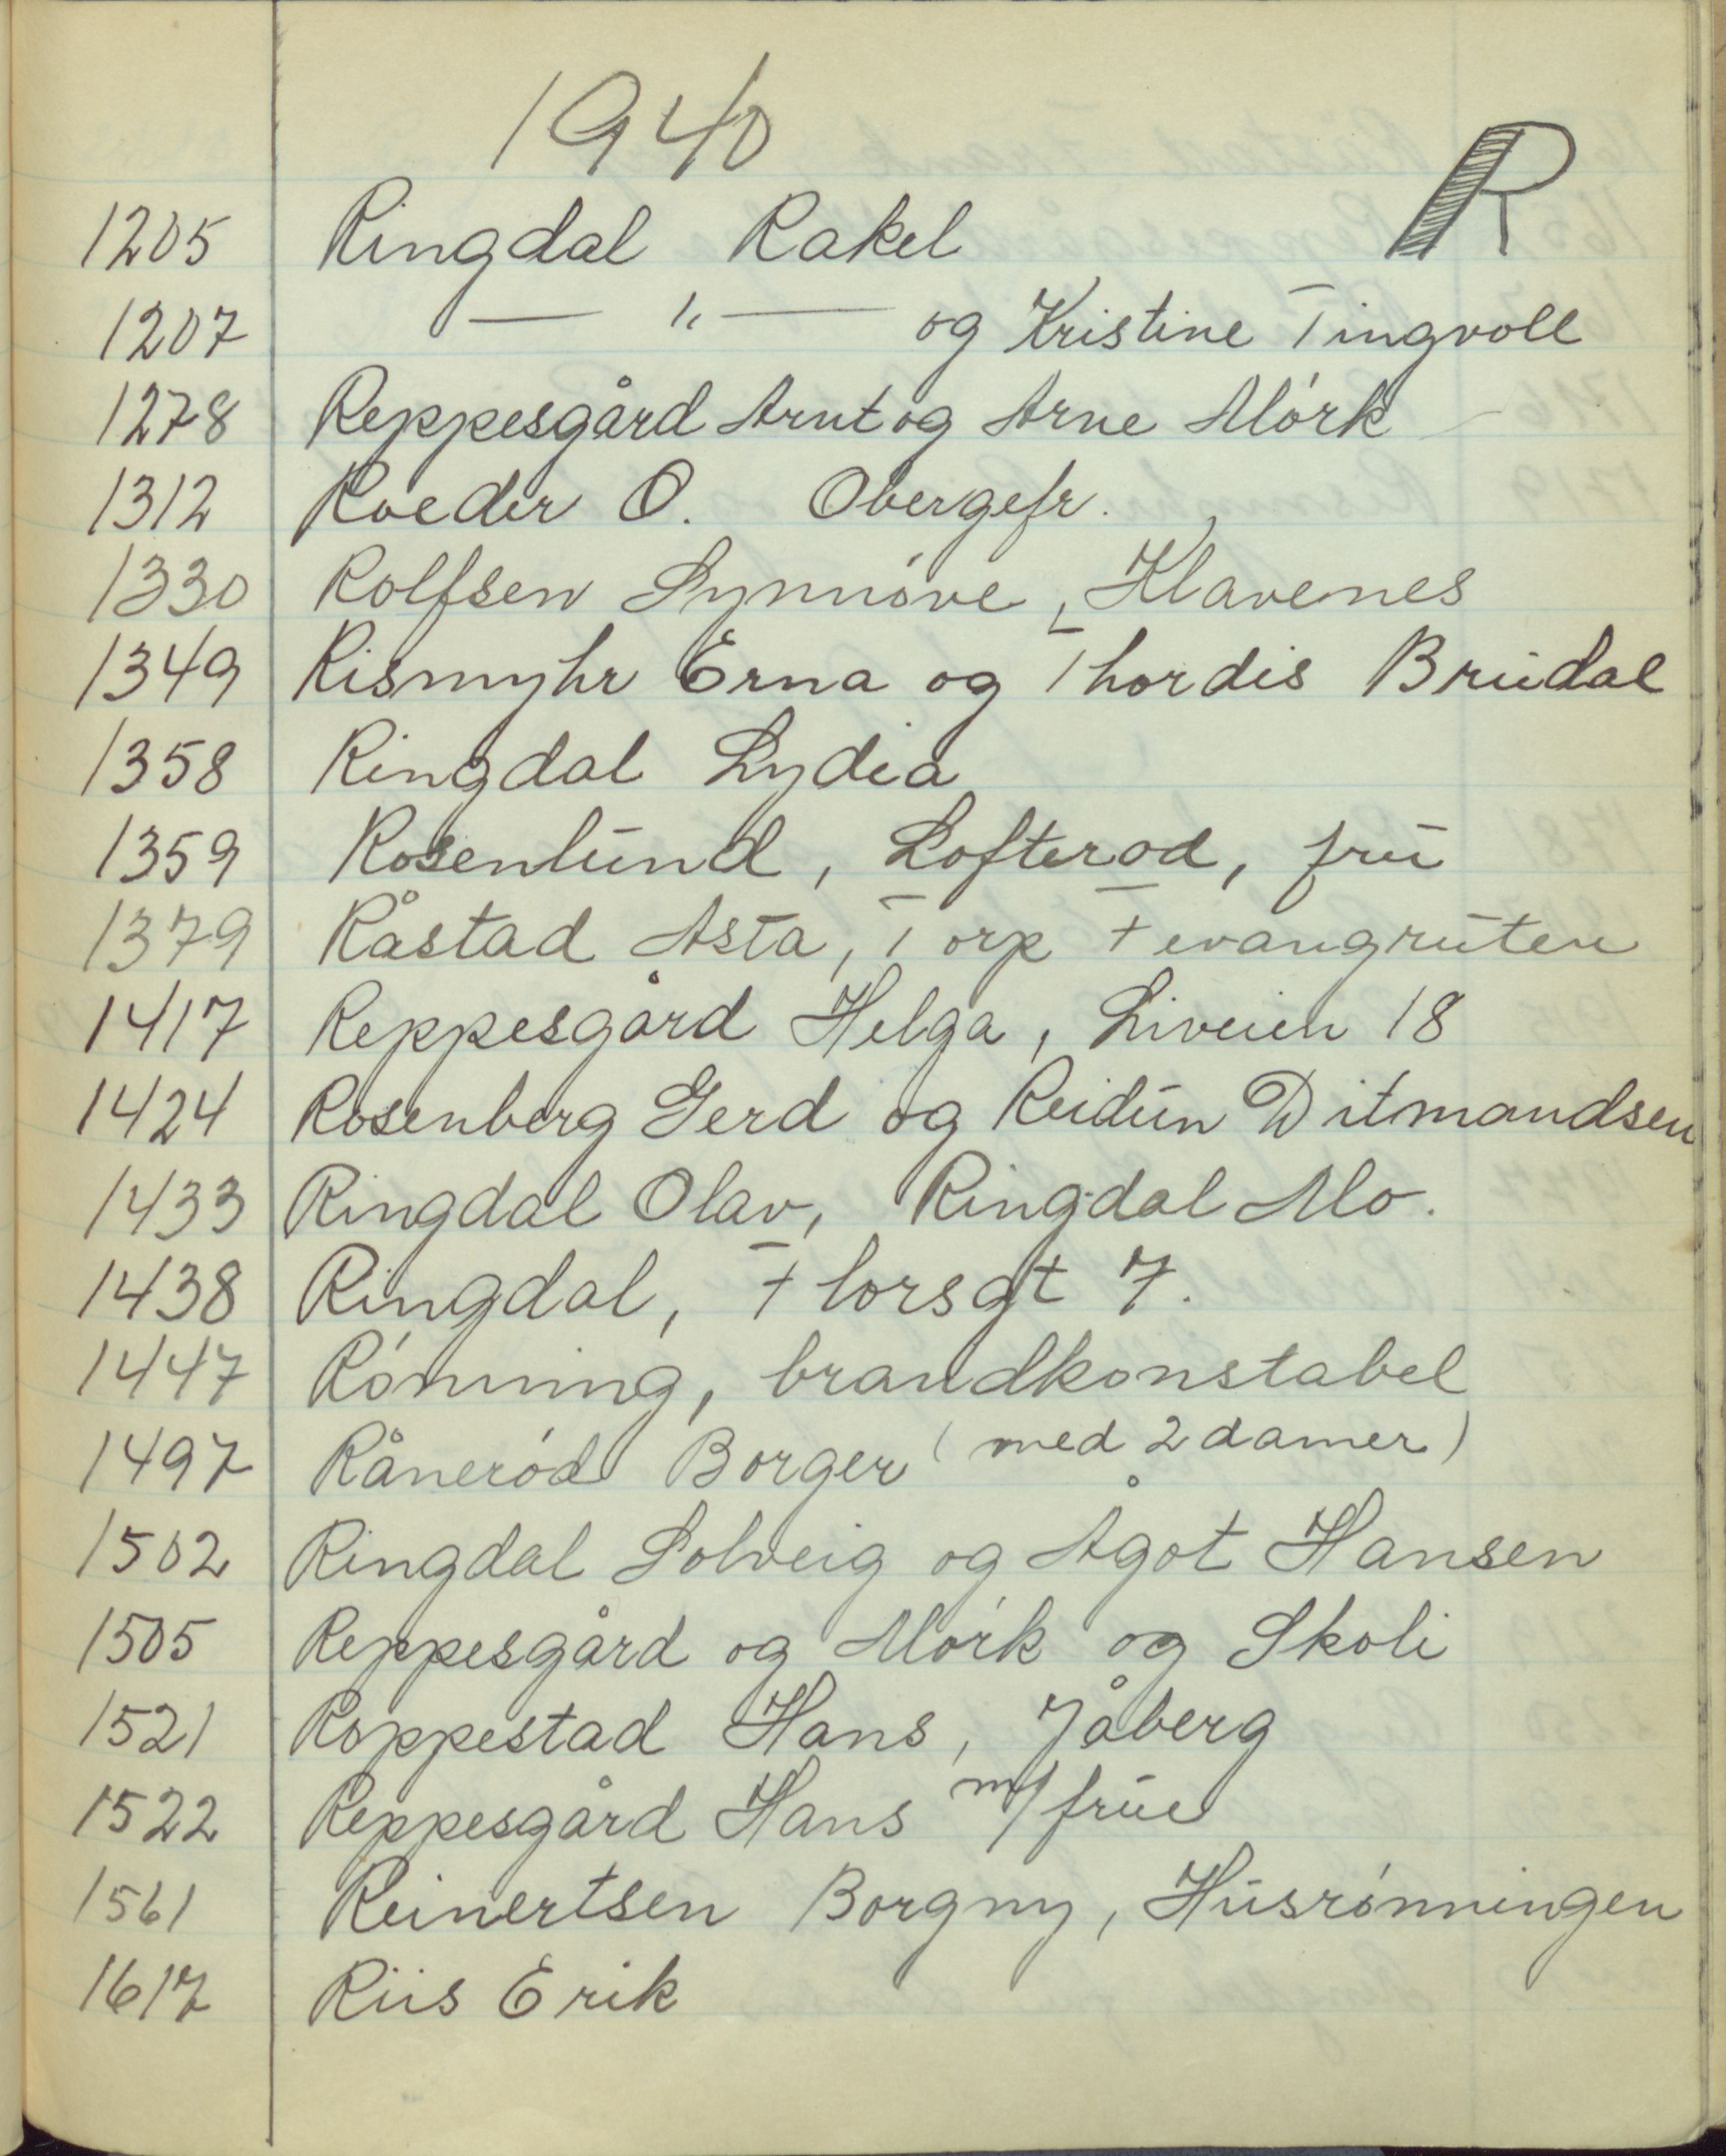 1940
R
1205 Ringdal Rakel
1207 — " — og Kristine Tingvoll
1278 Reppesgård Arnt og Arne Mørk
1312 Roeder O. Obergefr.
1330 Rolfsen Synnöve, Klavenes
1349 Rismyhr Erna og Thordis Brudal
1358 Ringdal Lydia
1359 Rosenlund, Lofterød, fru
1379 Råstad Asta, Torp Fevangruten
1417 Reppesgård Helga, Liveien 18
1424 Rosenberg Gerd og Reidun Ditmandsen
1433 Ringdal Olav, Ringdal Mo.
1438 Ringdal, Thorsgt 7.
1447 Rønning, brandkonstabel
1497 Rånerød Borger (med 2 damer)
1502 Ringdal Solveig og Ågot Hansen
1505 Reppesgård og Mørk og Skoli
1521 Roppestad Hans, Jåberg
1522 Reppesgård Hans m/frue
1561 Reinertsen Borgny, Husrønningen
1617 Riis Erik